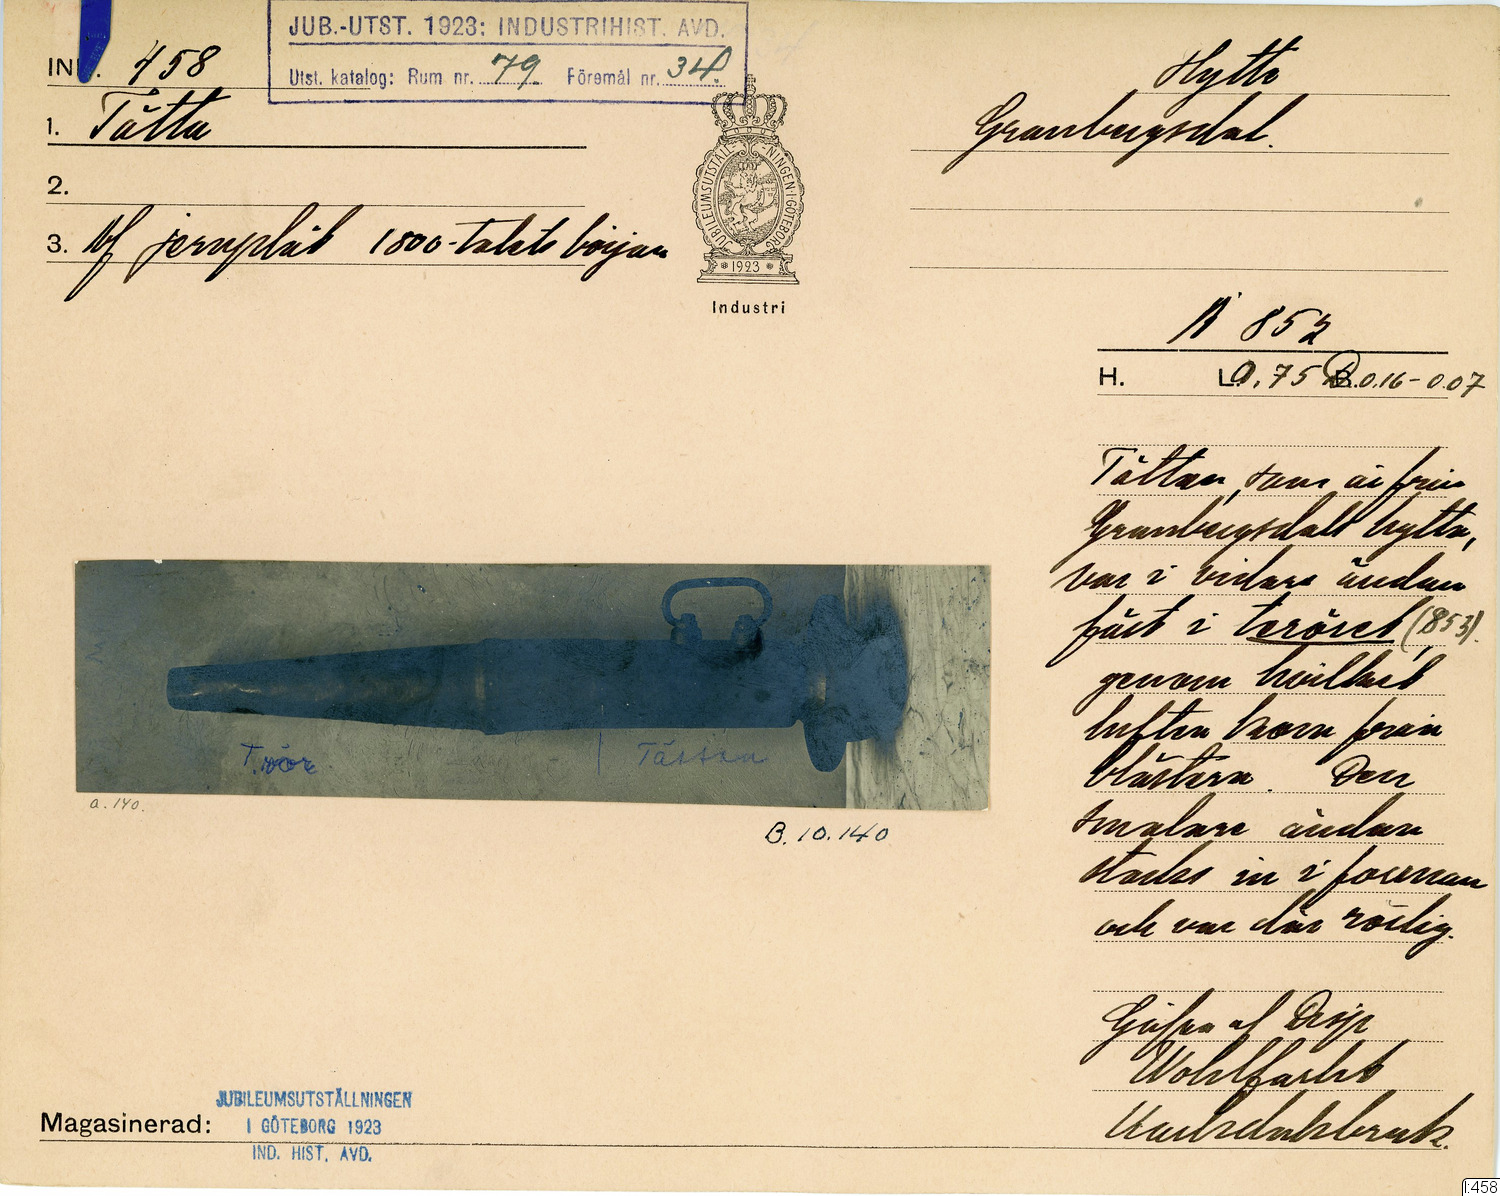 JUB.-UTST. 1923: INDUSTRIHIST. AVD.
Utst. katalog: Rum nr. 79 Föremål nr. 34.
INV. 458
1. Tätta
2.
3. Af jernplåt 1800-talets början
JUBILEUMSUTSTÄLLNINGEN I GÖTEBORG
1923
Industri
Hytta
Granbergsdal.
A 852
H. L. 0.75 B. 0.16-0.07
Tättan, som är från
Granbergsdals hytta,
var i vidare ändan
fäst i teröret (853).
genom hvilket
luften kom från
blästern. Den
smalare ändan
stacks in i forman
och var där rörlig.
Gåfva af Disp
Wohlfarht
Karlsdalsbruk.
T.rör | Tättan
a.140.
B.10.140
Magasinerad:
JUBILEUMSUTSTÄLLNINGEN
I GÖTEBORG 1923
IND. HIST. AVD.
I:458